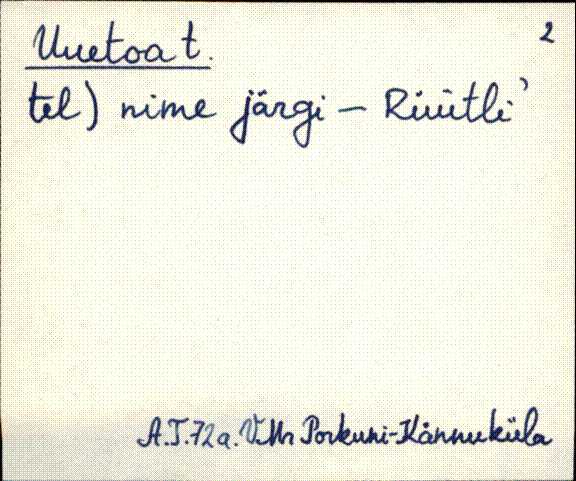 2
Uuetoa t.
tel) nime järgi – Rüütli’
A.T. 72 a. V.Mr Porkuni-Kännuküla